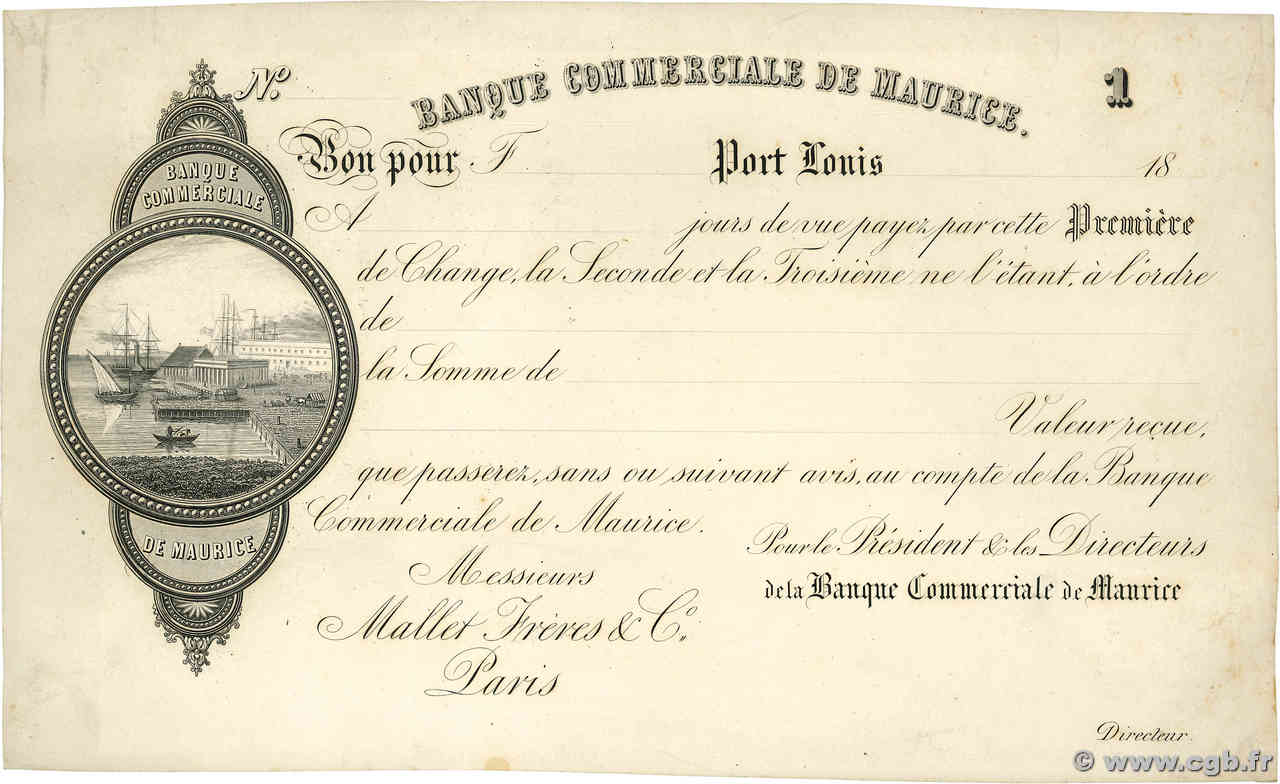 BANQUE COMMERCIALE DE MAURICE.
1
No.
Bon pour F Port Louis 18
BANQUE
COMMERCIALE
DE MAURICE
A jours de vue payez par cette Première
de Change, la Seconde et la Troisième ne l'étant, à l'ordre
de
la Somme de
Valeur reçue,
que passerez, sans ou suivant avis, au compte de la Banque
Commerciale de Maurice.
Pour le Président & les Directeurs
de la Banque Commerciale de Maurice
Messieurs
Mallet Frères & Co.
Paris
Directeur.
© www.cgb.fr